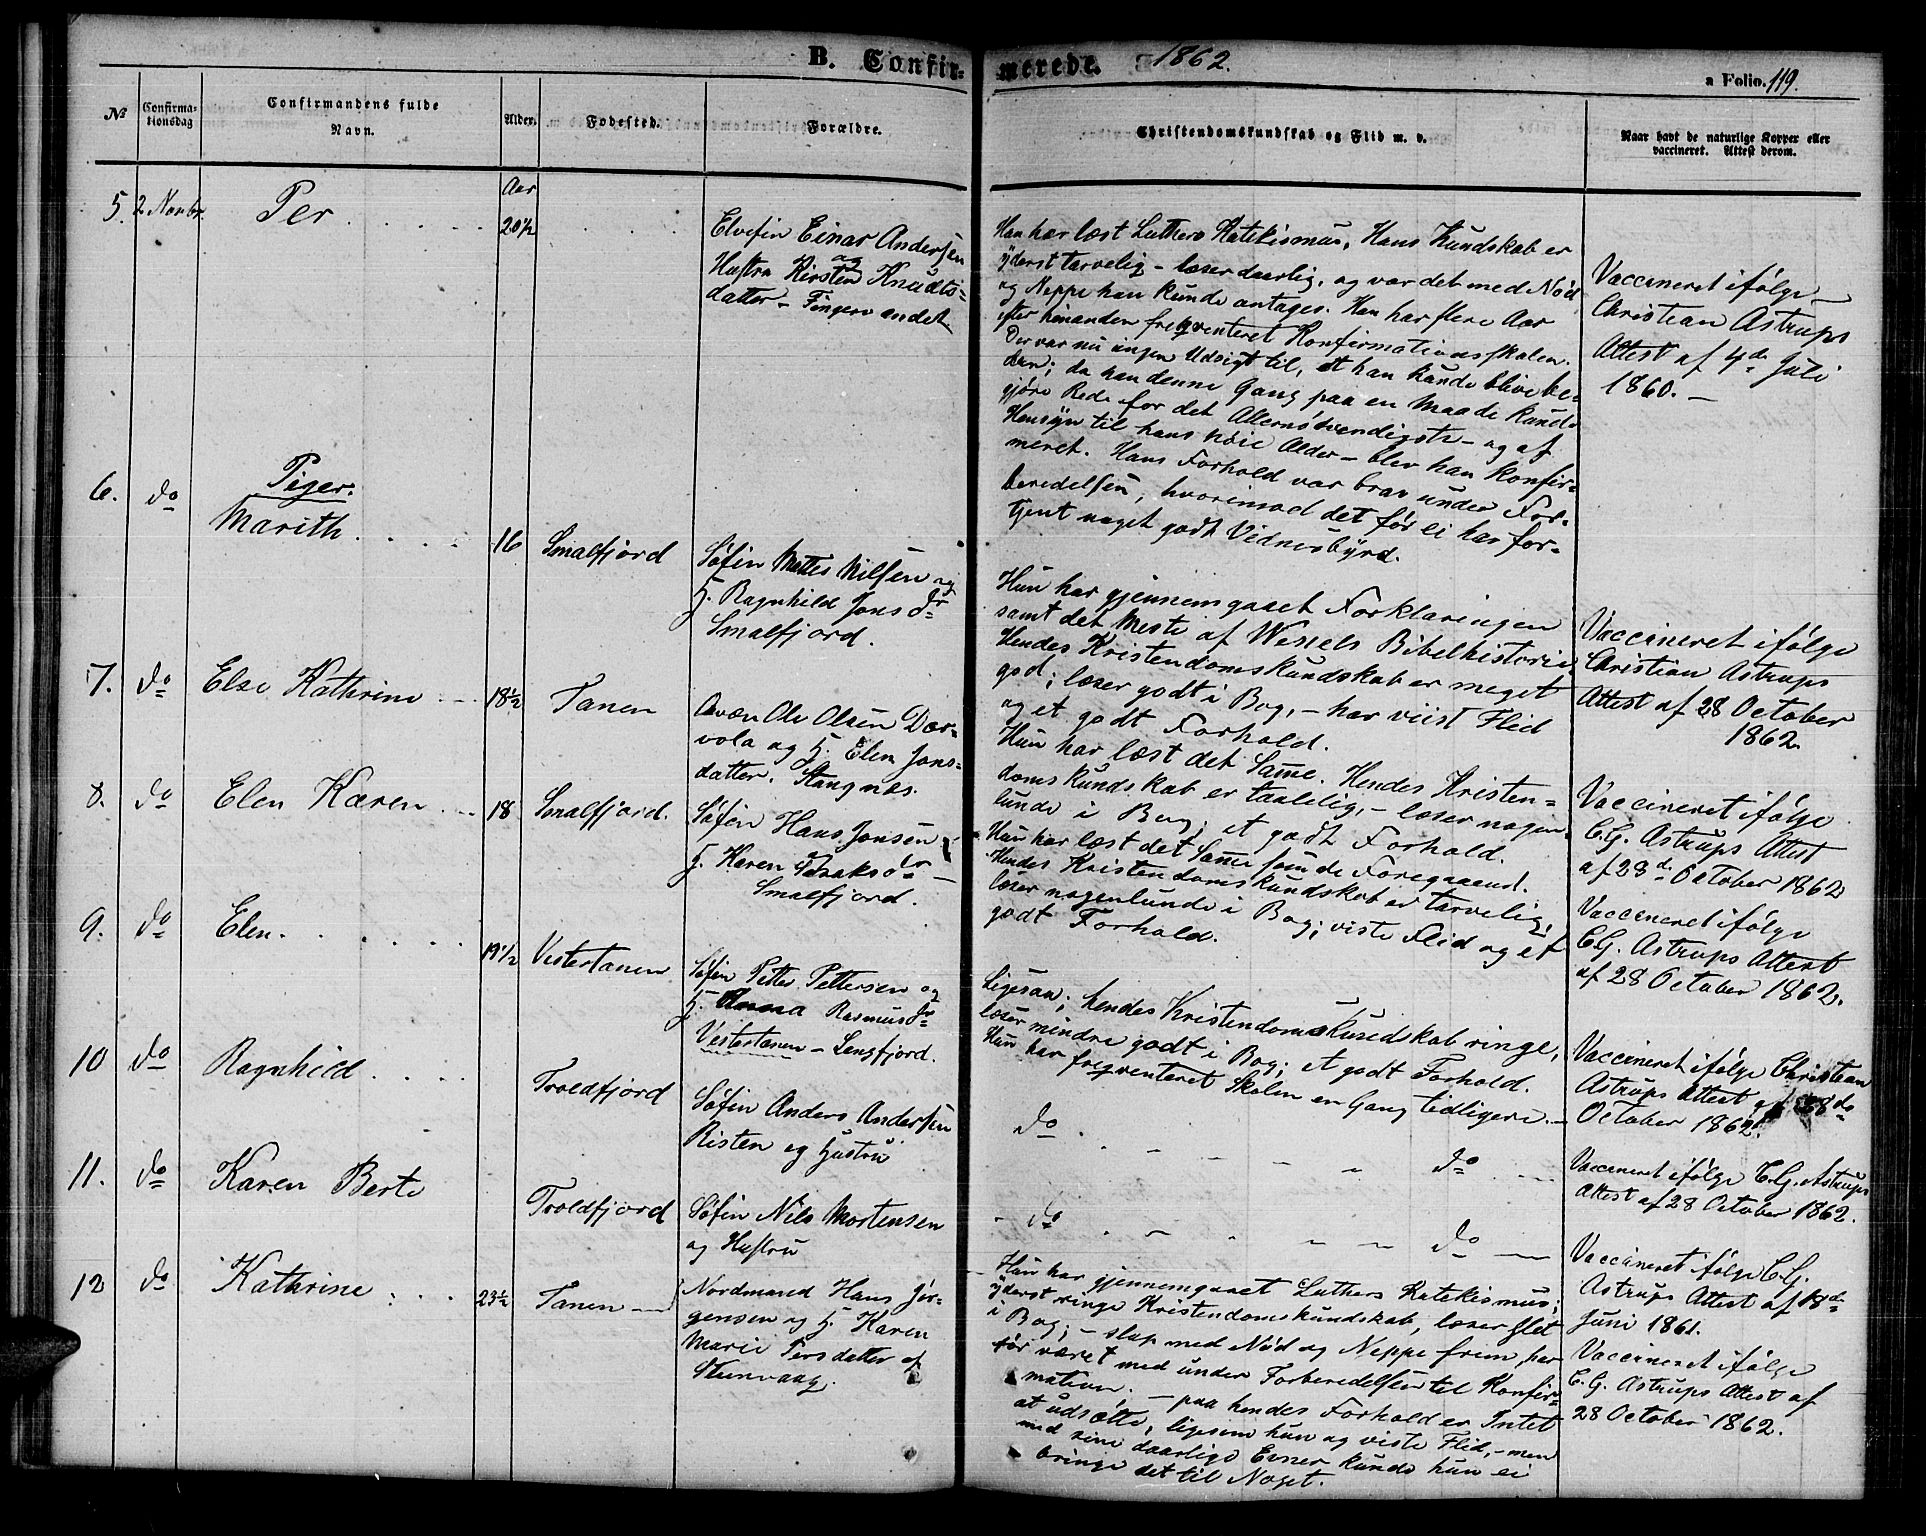 B. Confir-
merede. 1862.
a Folio. 119.
№
Confirma-
tionsdag
Confirmandens fulde
Navn.
Alder.
Fødested.
Forældre.
Christendomskundskab og Flid m. v.
Naar havt de naturlige Kopper eller
vaccineret. Attest derom.
5. 2 Novbr. Per
Aar
20½
Elvefin Einar Andersen
og
Hustru Kirsten Knudts-
datter - Fingervandet
Han har læst Luthers Katekismus, Hans Kundskab er
yderst tarvelig - læser daarlig, og var det med Nød
og Neppe han kunde antages. Han har flere Aar
efter hinanden freqventeret Konfirmationsskolen.
Der var nu ingen Udsigt til, at han kunde blive be-
dre; da han denne Gang paa en Maade kunde
gjøre Rede for det Allernødvendigste - og af
Hensyn til hans høie Alder - blev han konfir-
meret. Hans Forhold var brav under For-
beredelsen, hvorimod det før ei har for-
tjent noget godt Vidnesbyrd.
Vaccineret ifølge
Christian Astrups
Attest af 4de Juli
1860. -
Piger.
6. do Marith
16 Smalfjord
Søfin Mattis Nilsen og
H. Ragnhild Jonsdr
Smalfjord.
Hun har gjennemgaaet Forklaringen
samt det meste af Wessels Bibelhistorie
Hendes Kristendomskundskab er meget
god; læser godt i Bog, - har viist Flid
og et godt Forhold.
Vaccineret ifølge
Christian Astrups
Attest af 28 October
1862.
7. do Else Kathrine
18½ Tanen
Qvæn Ole Olsen Dær-
vola og H. Elen Jons-
datter. Stangnæs.
Hun har læst det Samme. Hendes Kristen-
domskundskab er taalelig, - læser nogen-
lunde i Bog; et godt Forhold.
Vaccineret ifølge
C.G. Astrups Attest
af 28de October 1862
8. do Elen Karen
18 Smalfjord.
Søfin Hans Jonsen
H. Karen Isaksdr
Smalfjord.
Hun har læst det Samme som de Foregaaend.
Hendes Kristendomskundskab er tarvelig,
læser nogenlunde i Bog; viste Flid og et
godt Forhold.
Vaccineret ifølge
C.G. Astrups Attest
af 28 October 1862.
9. do Elen
19½ Vestertanen
Søfin Petter Pettersen og
H. Anna Rasmusdr
Vestertanen - Lengfjord.
Ligesaa; hendes Kristendomskundskab ringe,
læser mindre godt i Bog; et godt Forhold.
Hun har freqventeret Skolen en Gang tidligere.
Vaccineret ifølge Christian
Astrups Attest af 28de
October 1862.
10 do Ragnhild
Troldfjord
Søfin Anders Andersen
Risten og Hustru
do do
Vaccineret ifølge C.G. Astrups
Attest af 28 October 1862.
11. do Karen Berte
Troldfjord
Søfin Nils Mortensen
og Hustru
do do
Vaccineret ifølge C.G.
Astrups Attest af 18de
Juni 1861.
12 do Kathrine
23½ Tanen
Nordmand Hans Jør-
gensen og H. Karen
Marie Persdatter af
Steenvaag.
Hun har gjennemgaaet Luthers Katekismus;
yderst ringe Kristendomskundskab, læser slet
i Bog, - slap med Nød og Neppe frem, har
før været med under Forberedelsen til Konfir-
mation. - paa hendes Forhold er Intet
at udsætte, ligesom hun og viste Flid, - men
med sine daarlige Evner kunde hun ei
bringe det til Noget.
Vaccineret ifølge
C.G. Astrups Attest af
28 October 1862.